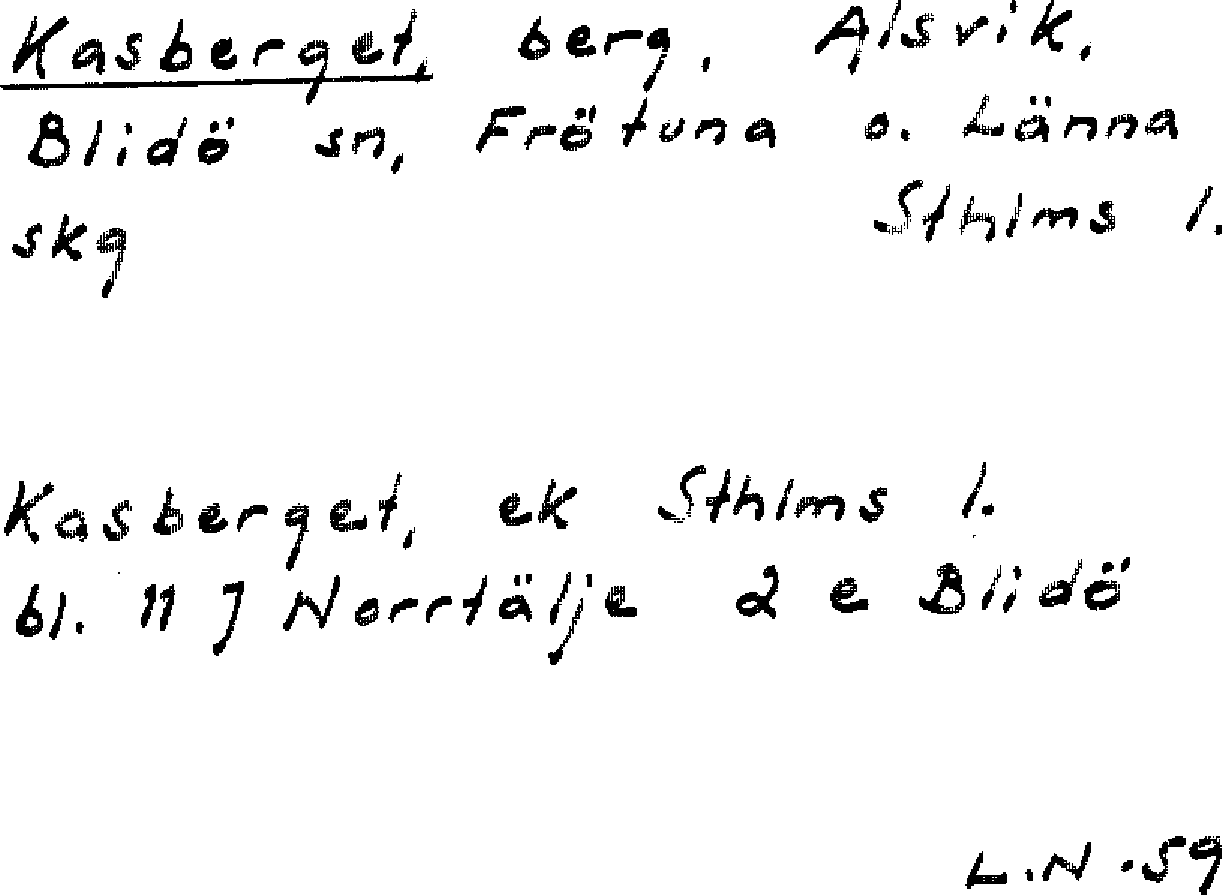 Kasberget, berg, Alsvik,
Blidö sn, Frötuna o. Länna
skg Sthlms l.
Kasberget, ek Sthlms l.
bl. 11 J Norrtälje 2 e Blidö
L.N.59